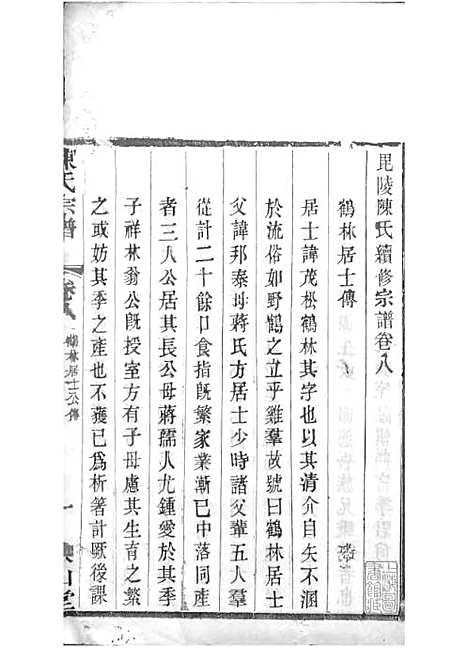 毘陵陳氏續修宗譜卷八
鶴林居士傳
居士諱茂松鶴林其字也以其清介自矢不溷
於流俗如野鶴之立乎雞羣故號曰鶴林居士
父諱邦泰母蔣氏方居士少時諸父輩五人羣
從計二十餘口食指旣繁家業漸已中落同產
者三人公居其長公母蔣孺人尤鍾愛於其季
子祥林翁公旣授室方有子母慮其生育之繁
之或妨其季之產也不獲已為析箸計厥後課
陳氏宗譜
卷八
鶴林居士公傳
一